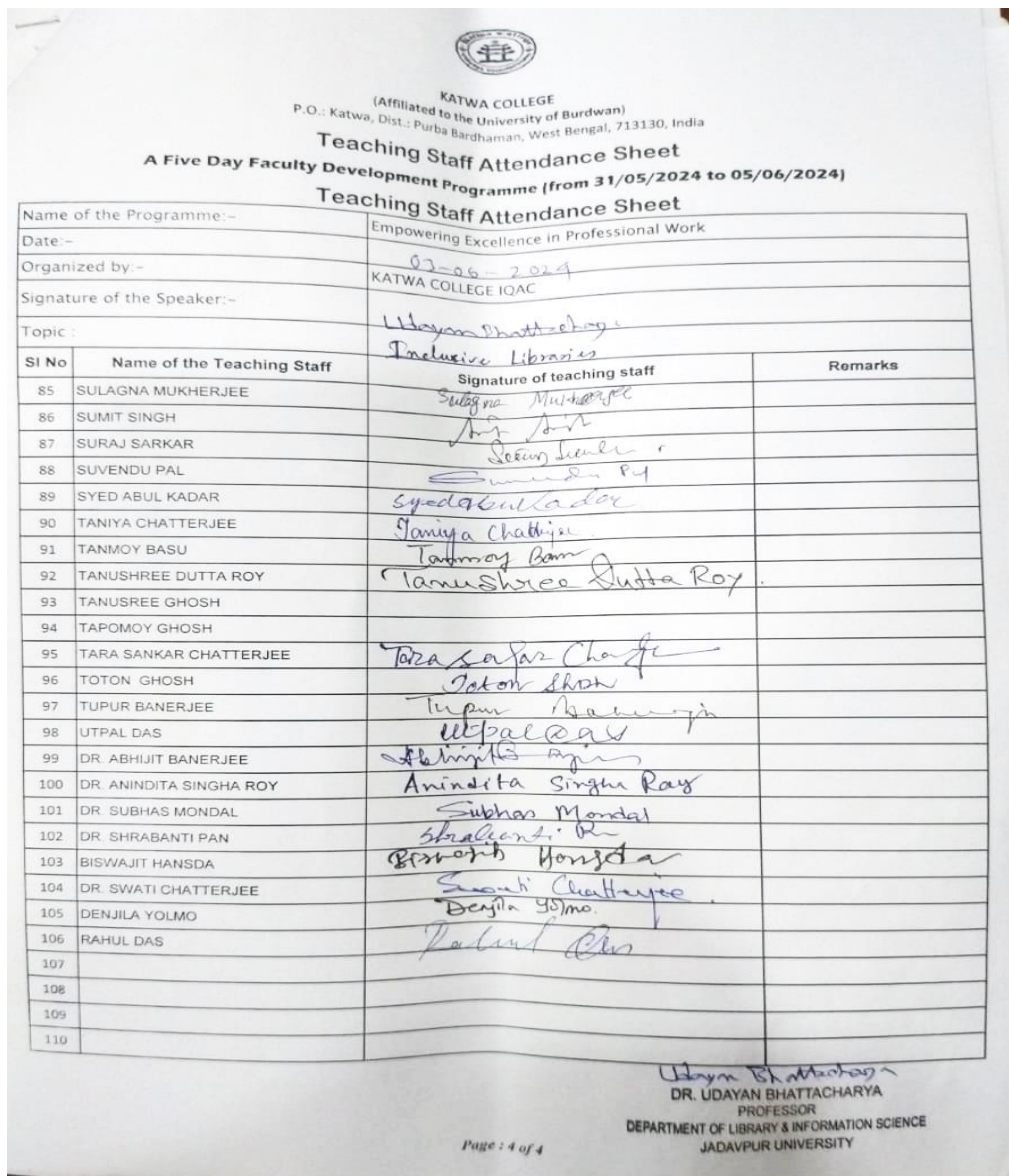 KATWA COLLEGE
(Affiliated to the University of Burdwan)
P.O.: Katwa, Dist.: Purba Bardhaman, West Bengal, 713130, India
Teaching Staff Attendance Sheet
A Five Day Faculty Development Programme (from 31/05/2024 to 05/06/2024)
Teaching Staff Attendance Sheet
Name of the Programme:- Empowering Excellence in Professional Work
Date:- 03-06-2024
Organized by:- KATWA COLLEGE IQAC
Signature of the Speaker:- Udayan Bhattacharya
Topic : Inclusive Libraries
Sl No Name of the Teaching Staff Signature of teaching staff Remarks
85 SULAGNA MUKHERJEE Sulagna Mukherjee
86 SUMIT SINGH
87 SURAJ SARKAR
88 SUVENDU PAL
89 SYED ABUL KADAR Syed abul Kadar
90 TANIYA CHATTERJEE Taniya Chatterjee
91 TANMOY BASU Tanmoy Basu
92 TANUSHREE DUTTA ROY Tanushree Dutta Roy.
93 TANUSREE GHOSH
94 TAPOMOY GHOSH
95 TARA SANKAR CHATTERJEE
96 TOTON GHOSH Toton Ghosh
97 TUPUR BANERJEE Tupur Banerjee
98 UTPAL DAS Utpal Das
99 DR. ABHIJIT BANERJEE
100 DR. ANINDITA SINGHA ROY Anindita Singha Ray
101 DR. SUBHAS MONDAL Subhas Mondal
102 DR. SHRABANTI PAN Shrabanti
103 BISWAJIT HANSDA Biswajit Hansda
104 DR. SWATI CHATTERJEE Swati Chatterjee.
105 DENJILA YOLMO Denjila Yolmo.
106 RAHUL DAS Rahul Das
107
108
109
110
Udayan Bhattacharya
DR. UDAYAN BHATTACHARYA
PROFESSOR
DEPARTMENT OF LIBRARY & INFORMATION SCIENCE
JADAVPUR UNIVERSITY
Page : 4 of 4